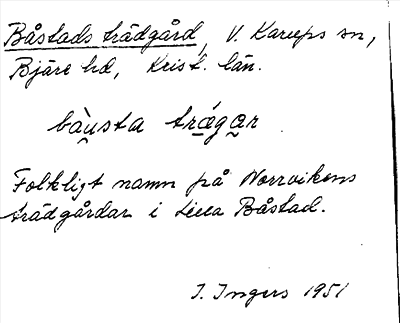 Båstads trädgård, V. Karups sn,
Bjäre hd, Krist. län.
bàu̯sta trágar.
Folkligt namn på Norrvikens
trädgårdar i Lilla Båstad.
I. Ingers 1951